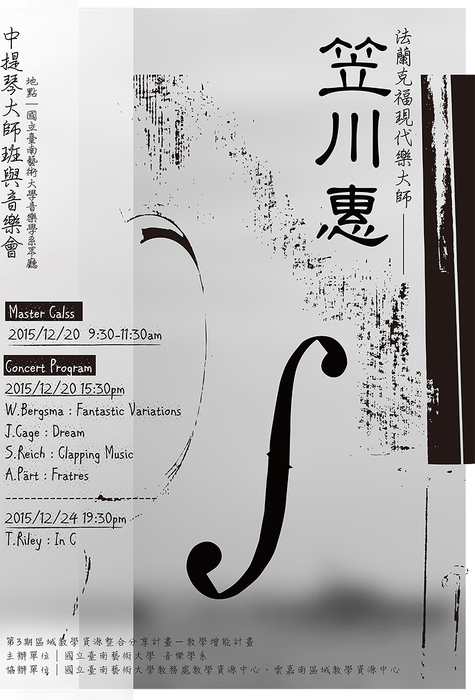 法蘭克福現代樂大師
笠川惠
中提琴大師班與音樂會
地點｜國立臺南藝術大學音樂學系眾廳
Master Calss
2015/12/20 9:30-11:30am
Concert Program
2015/12/20 15:30pm
W.Bergsma : Fantastic Variations
J.Cage : Dream
S.Reich : Clapping Music
A.Part : Fratres
2015/12/24 19:30pm
T.Riley : In C
第3期區域教學資源整合分享計畫－教學增能計畫
主辦單位｜國立臺南藝術大學 音樂學系
協辦單位｜國立臺南藝術大學教務處教學資源中心、雲嘉南區域教學資源中心